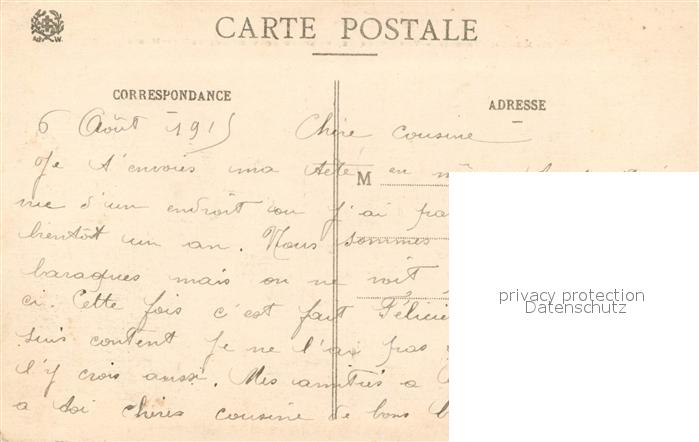 CARTE POSTALE
CORRESPONDANCE
ADRESSE
6 Août 1915 Chère cousine
Je t'envoies ma en
M
vue d'un endroit ou j'ai
bientôt un an. Nous sommes
baraques mais on ne voit
ci. Cette fois c'est fait
suis content je ne l'ai pas
l'y crois aussi. Mes amitiés a
a toi chères cousine de bons
privacy protection
Datenschutz